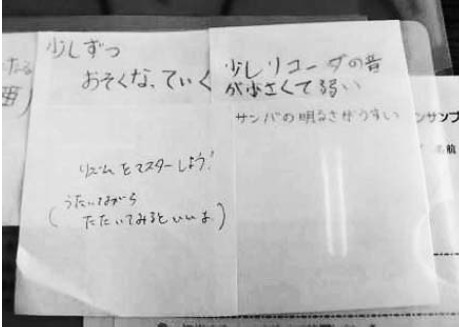 少しずつ
おそくなっていく
リズムをマスターしよう!
(うたいながら
たたいてみるといいよ)
少しリコーダの音
が小さくて弱い
サンバの明るさがうすい
ンサンプ
名前